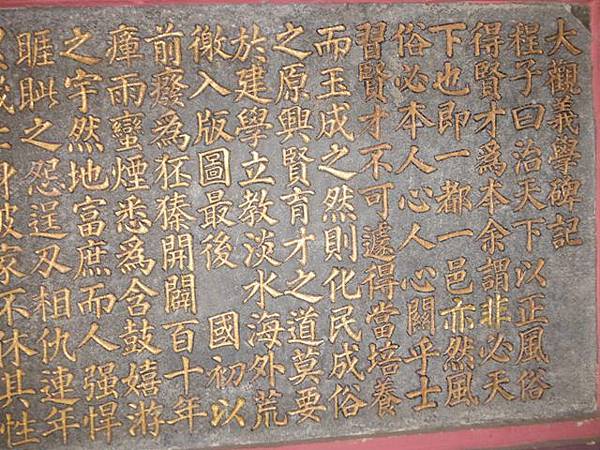 大觀義學碑記
程子曰治天下以正風俗
得賢才為本余謂非必天
下也即一都一邑亦然風
俗必本人心人心關乎士
習賢才不可遽得當培養
而玉成之然則化民成俗
之原興賢育才之道莫要
於建學立教淡水海外荒
徼入版圖最後 國初以
前癈為狂獉開闢百十年
瘴雨蠻煙悉為含鼓嬉游
之宇然地富庶而人强悍
睚眦之怨逞刃相仇連年
身破家不休其性